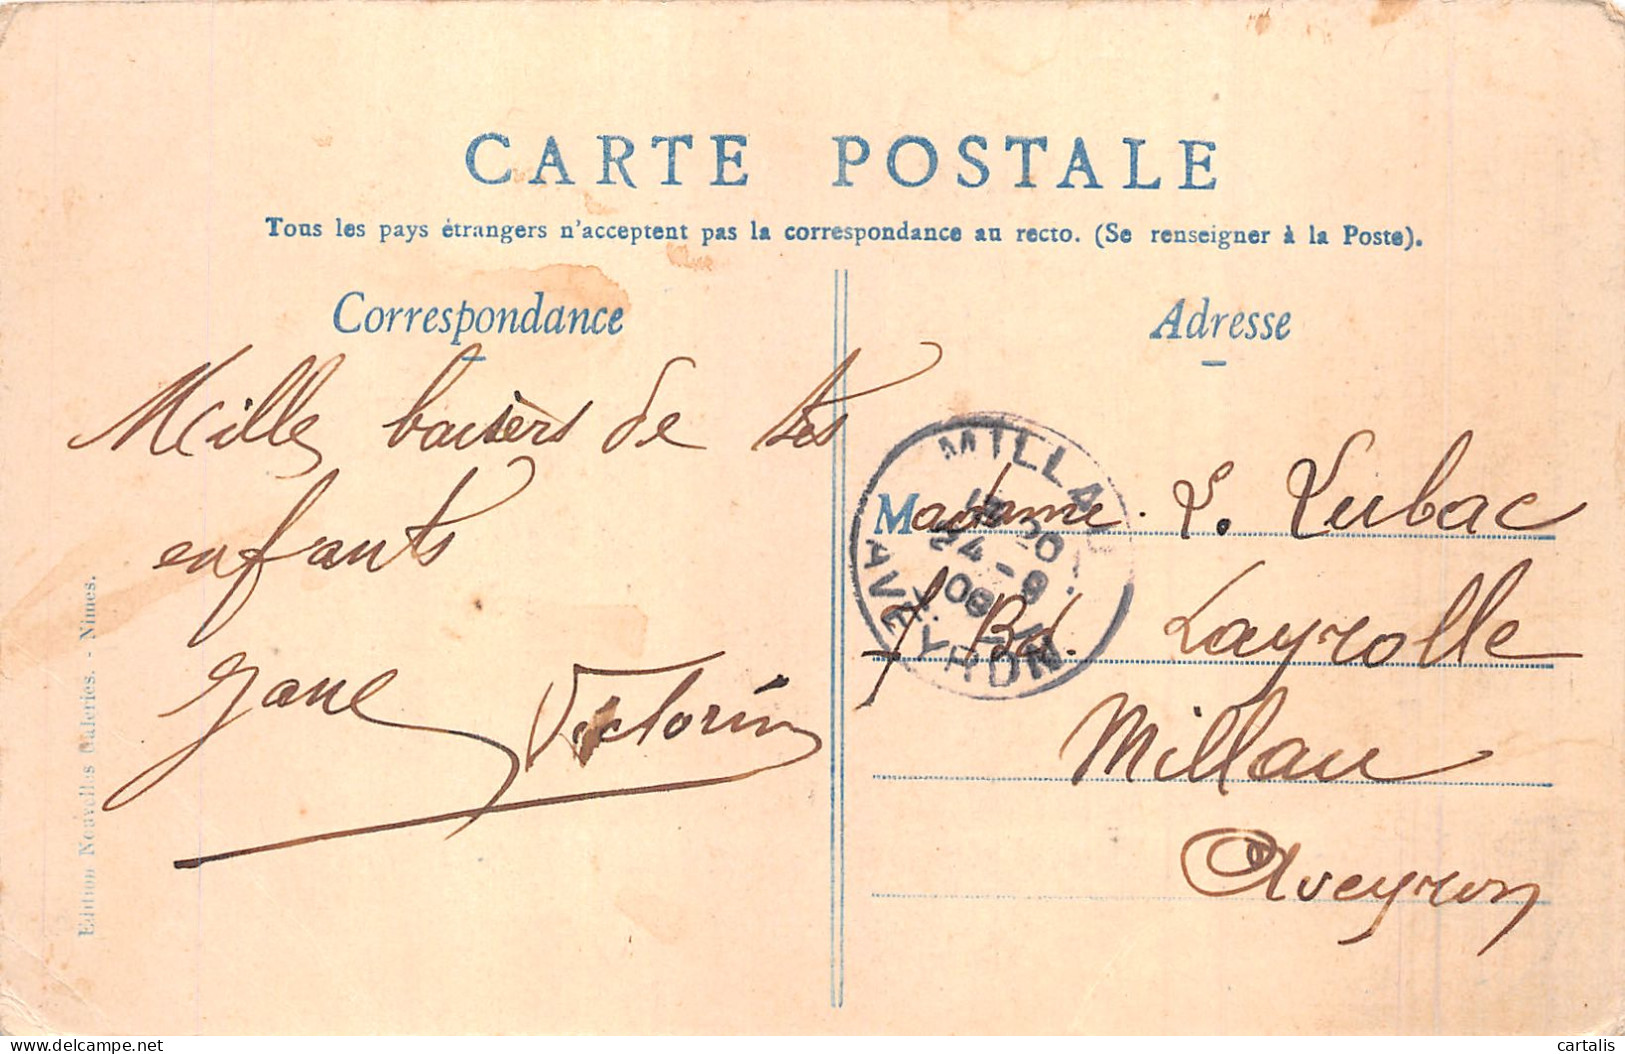 CARTE POSTALE
Tous les pays étrangers n'acceptent pas la correspondance au recto. (Se renseigner à la Poste).
Correspondance
Mille baisers de tes
enfants
Jane Victorin
Edition Nouvelles Galeries. - Nimes.
Adresse
Madame L. Lubac
7 Bd. Layrolle
Millau
Aveyron
MILLAU
24 - 9
06
AVEYRON
cartalis